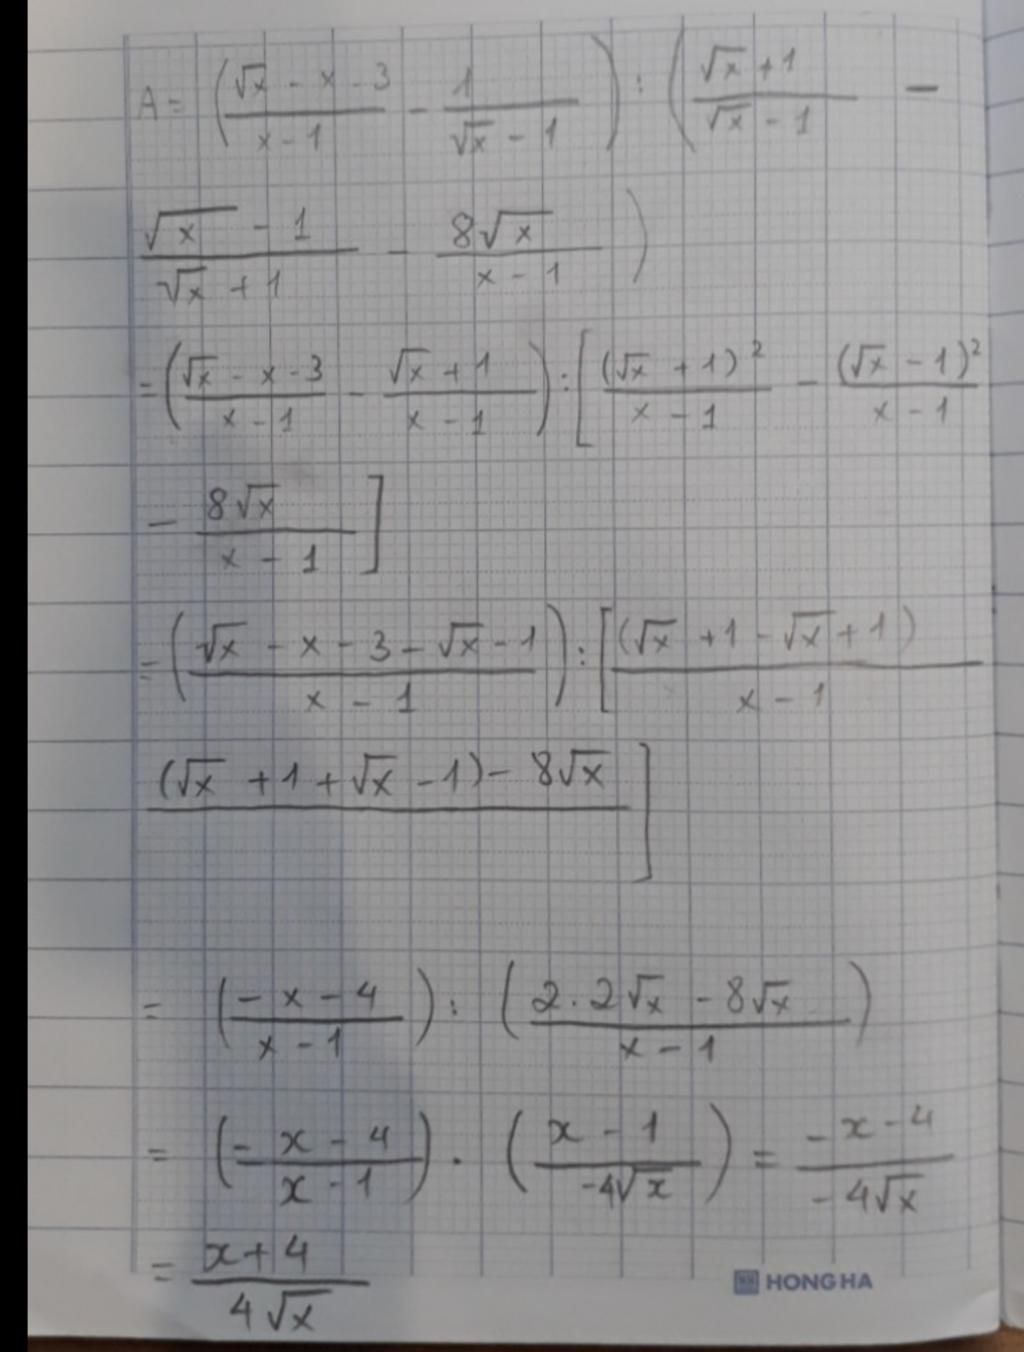 A = ( (√x - x - 3)/(x - 1) - 1/(√x - 1) ) : ( (√x + 1)/(√x - 1) -
(√x - 1)/(√x + 1) - 8√x/(x - 1) )
= ( (√x - x - 3)/(x - 1) - (√x + 1)/(x - 1) ) : [ (√x + 1)²/(x - 1) - (√x - 1)²/(x - 1)
- 8√x/(x - 1) ]
= ( (√x - x - 3 - √x - 1)/(x - 1) ) : [ (√x + 1 - √x + 1)/(x - 1)
(√x + 1 + √x - 1) - 8√x ]
= ( (-x - 4)/(x - 1) ) : ( (2.2√x - 8√x)/(x - 1) )
= ( (-x - 4)/(x - 1) ) . ( (x - 1)/(-4√x) ) = (-x - 4)/(-4√x)
= (x + 4)/(4√x)
HONG HA